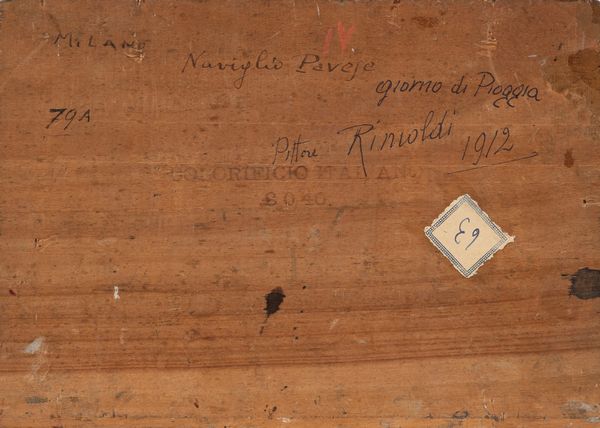 IV
MILANO
Naviglio Pavese
giorno di Pioggia
79A
Pittore Rimoldi 1912
COLORIFICIO ITALIANO
63